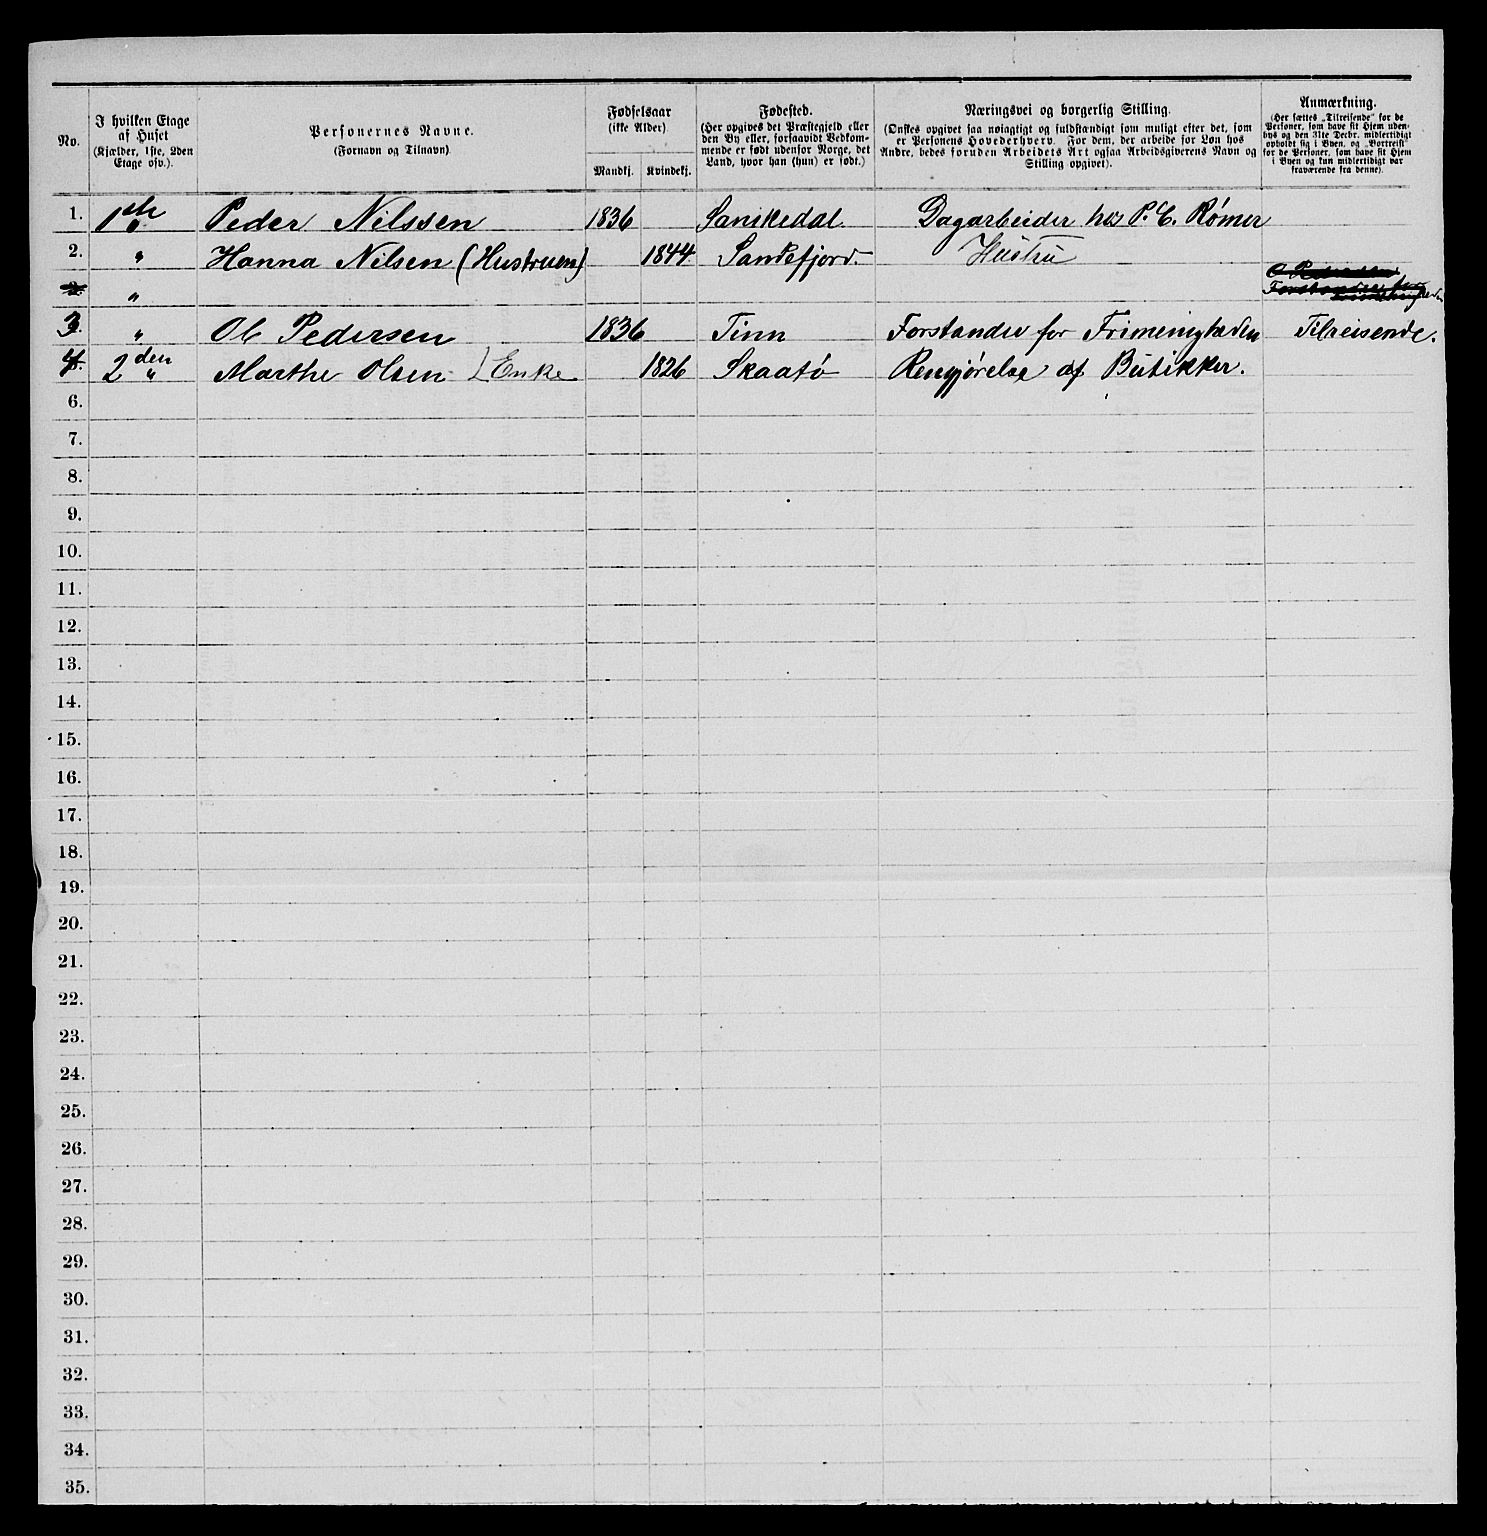 No.
I hvilken Etage af Huset (Kjælder, 1ste, 2den Etage osv.).
Personernes Navne. (Fornavn og Tilnavn)
Fødselsaar (ikke Alder)
Mandkj. Kvindekj.
Fødested. (Her opgives det Præstegjeld eller den By eller, forsaavidt Vedkommende er født udenfor Norge, det Land, hvor han (hun) er født.)
Næringsvei og borgerlig Stilling. (Ønskes opgivet saa nøiagtigt og fuldstændigt som muligt efter det, som er Personens Hovederhverv. For dem, der arbeide for Løn hos Andre, bedes foruden Arbeidets Art ogsaa Arbeidsgiverens Navn og Stilling opgivet).
Anmærkning. (Her sættes „Tilreisende“ for de Personer, som have sit Hjem udenbys og den 31te Decbr. midlertidigt opholdt sig i Byen, og „Bortreist“ for de Personer, som have sit Hjem i Byen og kun midlertidigt var fraværende fra denne).
1. 1ste Peder Nilssen 1836 Sanikedal Dagarbeider hos P. C. Rømer
2. „ Hanna Nilsen (Hustruen) 1844 Sandefjord. Hustru
„
3 „ Ole Pedersen 1836 Tinn Forstander for Frimenigheden Tilreisende.
4. 2den „ Marthe Olsen Enke 1826 Skaatø Rengjørelse af Butikker.
6.
7.
8.
9.
10.
11.
12.
13.
14.
15.
16.
17.
18.
19.
20.
21.
22.
23.
24.
25.
26.
27.
28.
29.
30.
31.
32.
33.
34.
35.